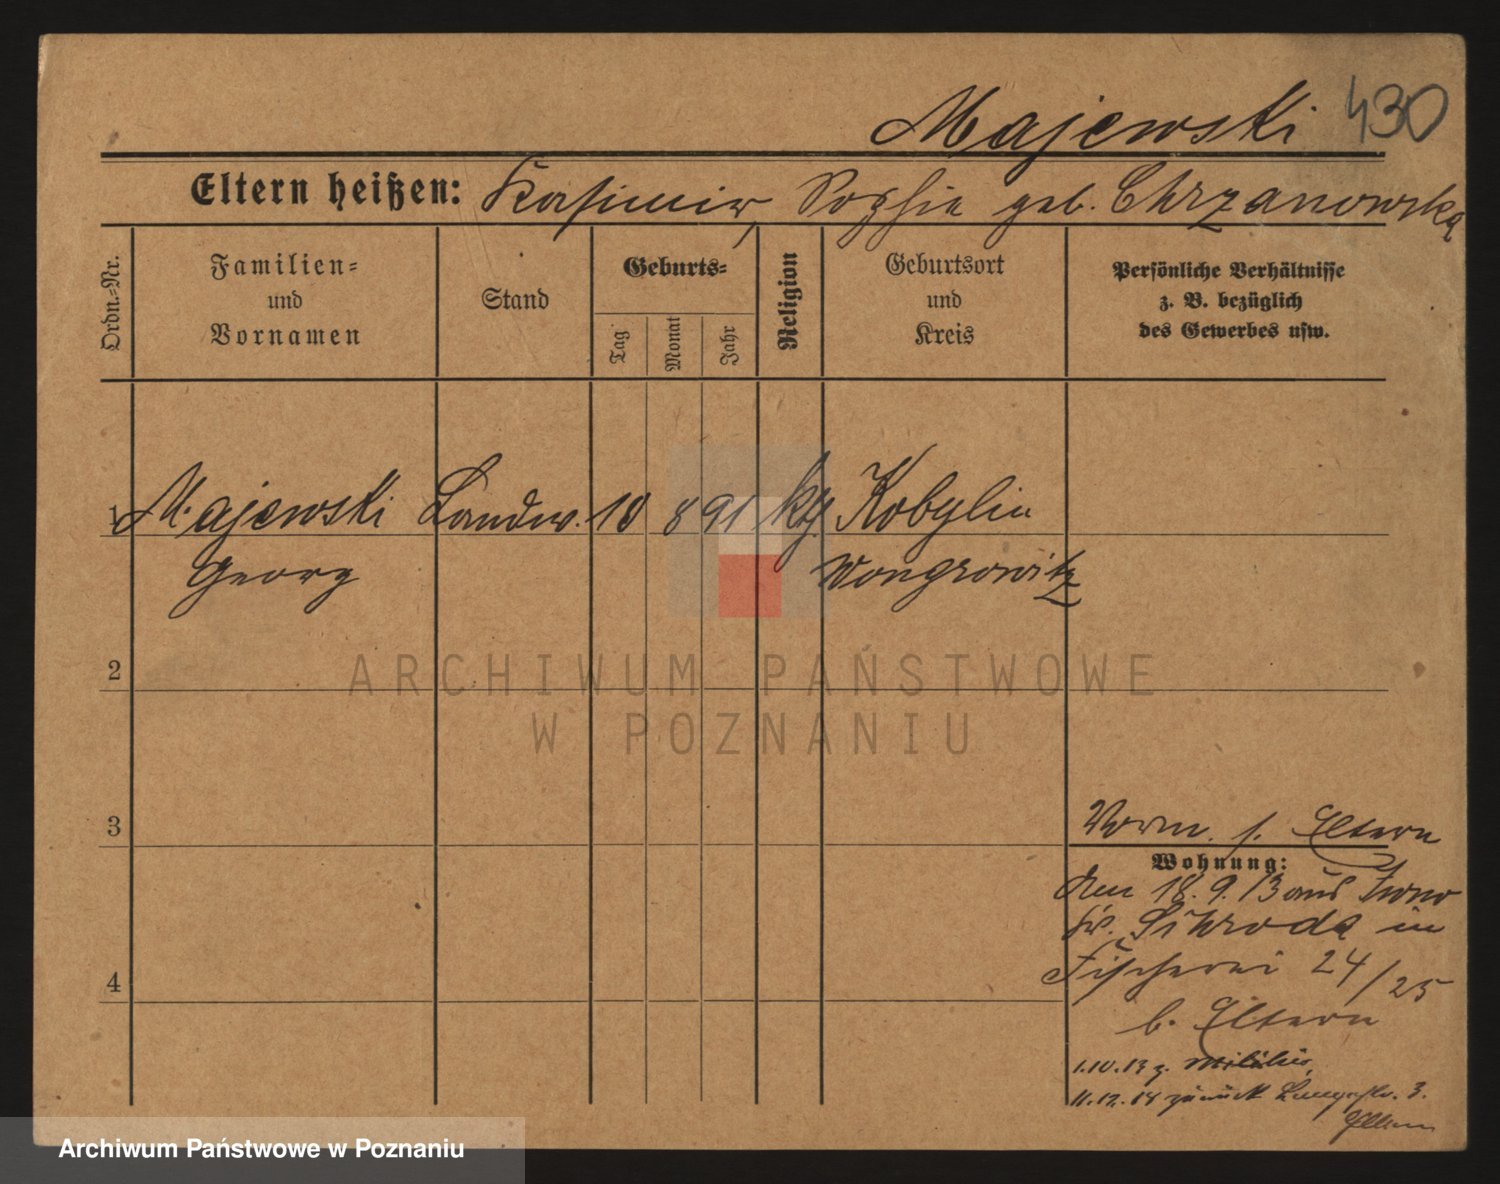 Majewski 430
Eltern heißen: Kasimir, Sophie geb. Chrzanowska
Ordn.-Nr.
Familien-
und
Vornamen
Stand
Geburts-
Tag
Monat
Jahr
Religion
Geburtsort
und
Kreis
Persönliche Verhältnisse
z. B. bezüglich
des Gewerbes usw.
1 Majewski Landw. 10 8 91 kg Kobylin
Georg Wongrowitz
2
ARCHIWUM PAŃSTWOWE
W POZNANIU
3
Vorm. s. Eltern
Wohnung:
den 18.9.13 aus
Kr. Schroda in
Fischerei 24/25
4
b. Eltern
1.10.13 z. Militär
11.12.14 zurück 3.
Eltern
Archiwum Państwowe w Poznaniu